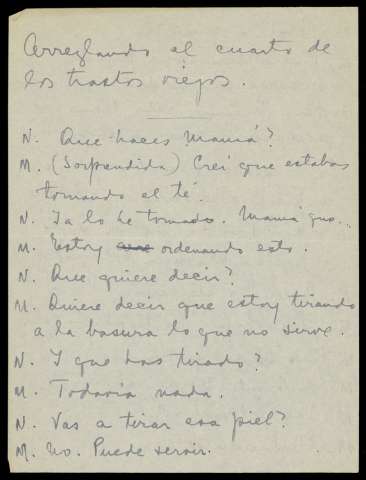 Arreglando el cuarto de
los trastos viejos.
N. Que haces Mamá?
M. (Sorprendida) Creí que estabas
tomando el té.
N. Ya lo he tomado. Mamá que..
M. Estoy ordenando esto.
N. Que quiere decir?
M. Quiere decir que estoy tirando
a la basura lo que no sirve.
N. Y que has tirado?
M. Todavía nada.
N. Vas a tirar esa piel?
M. No. Puede servir.